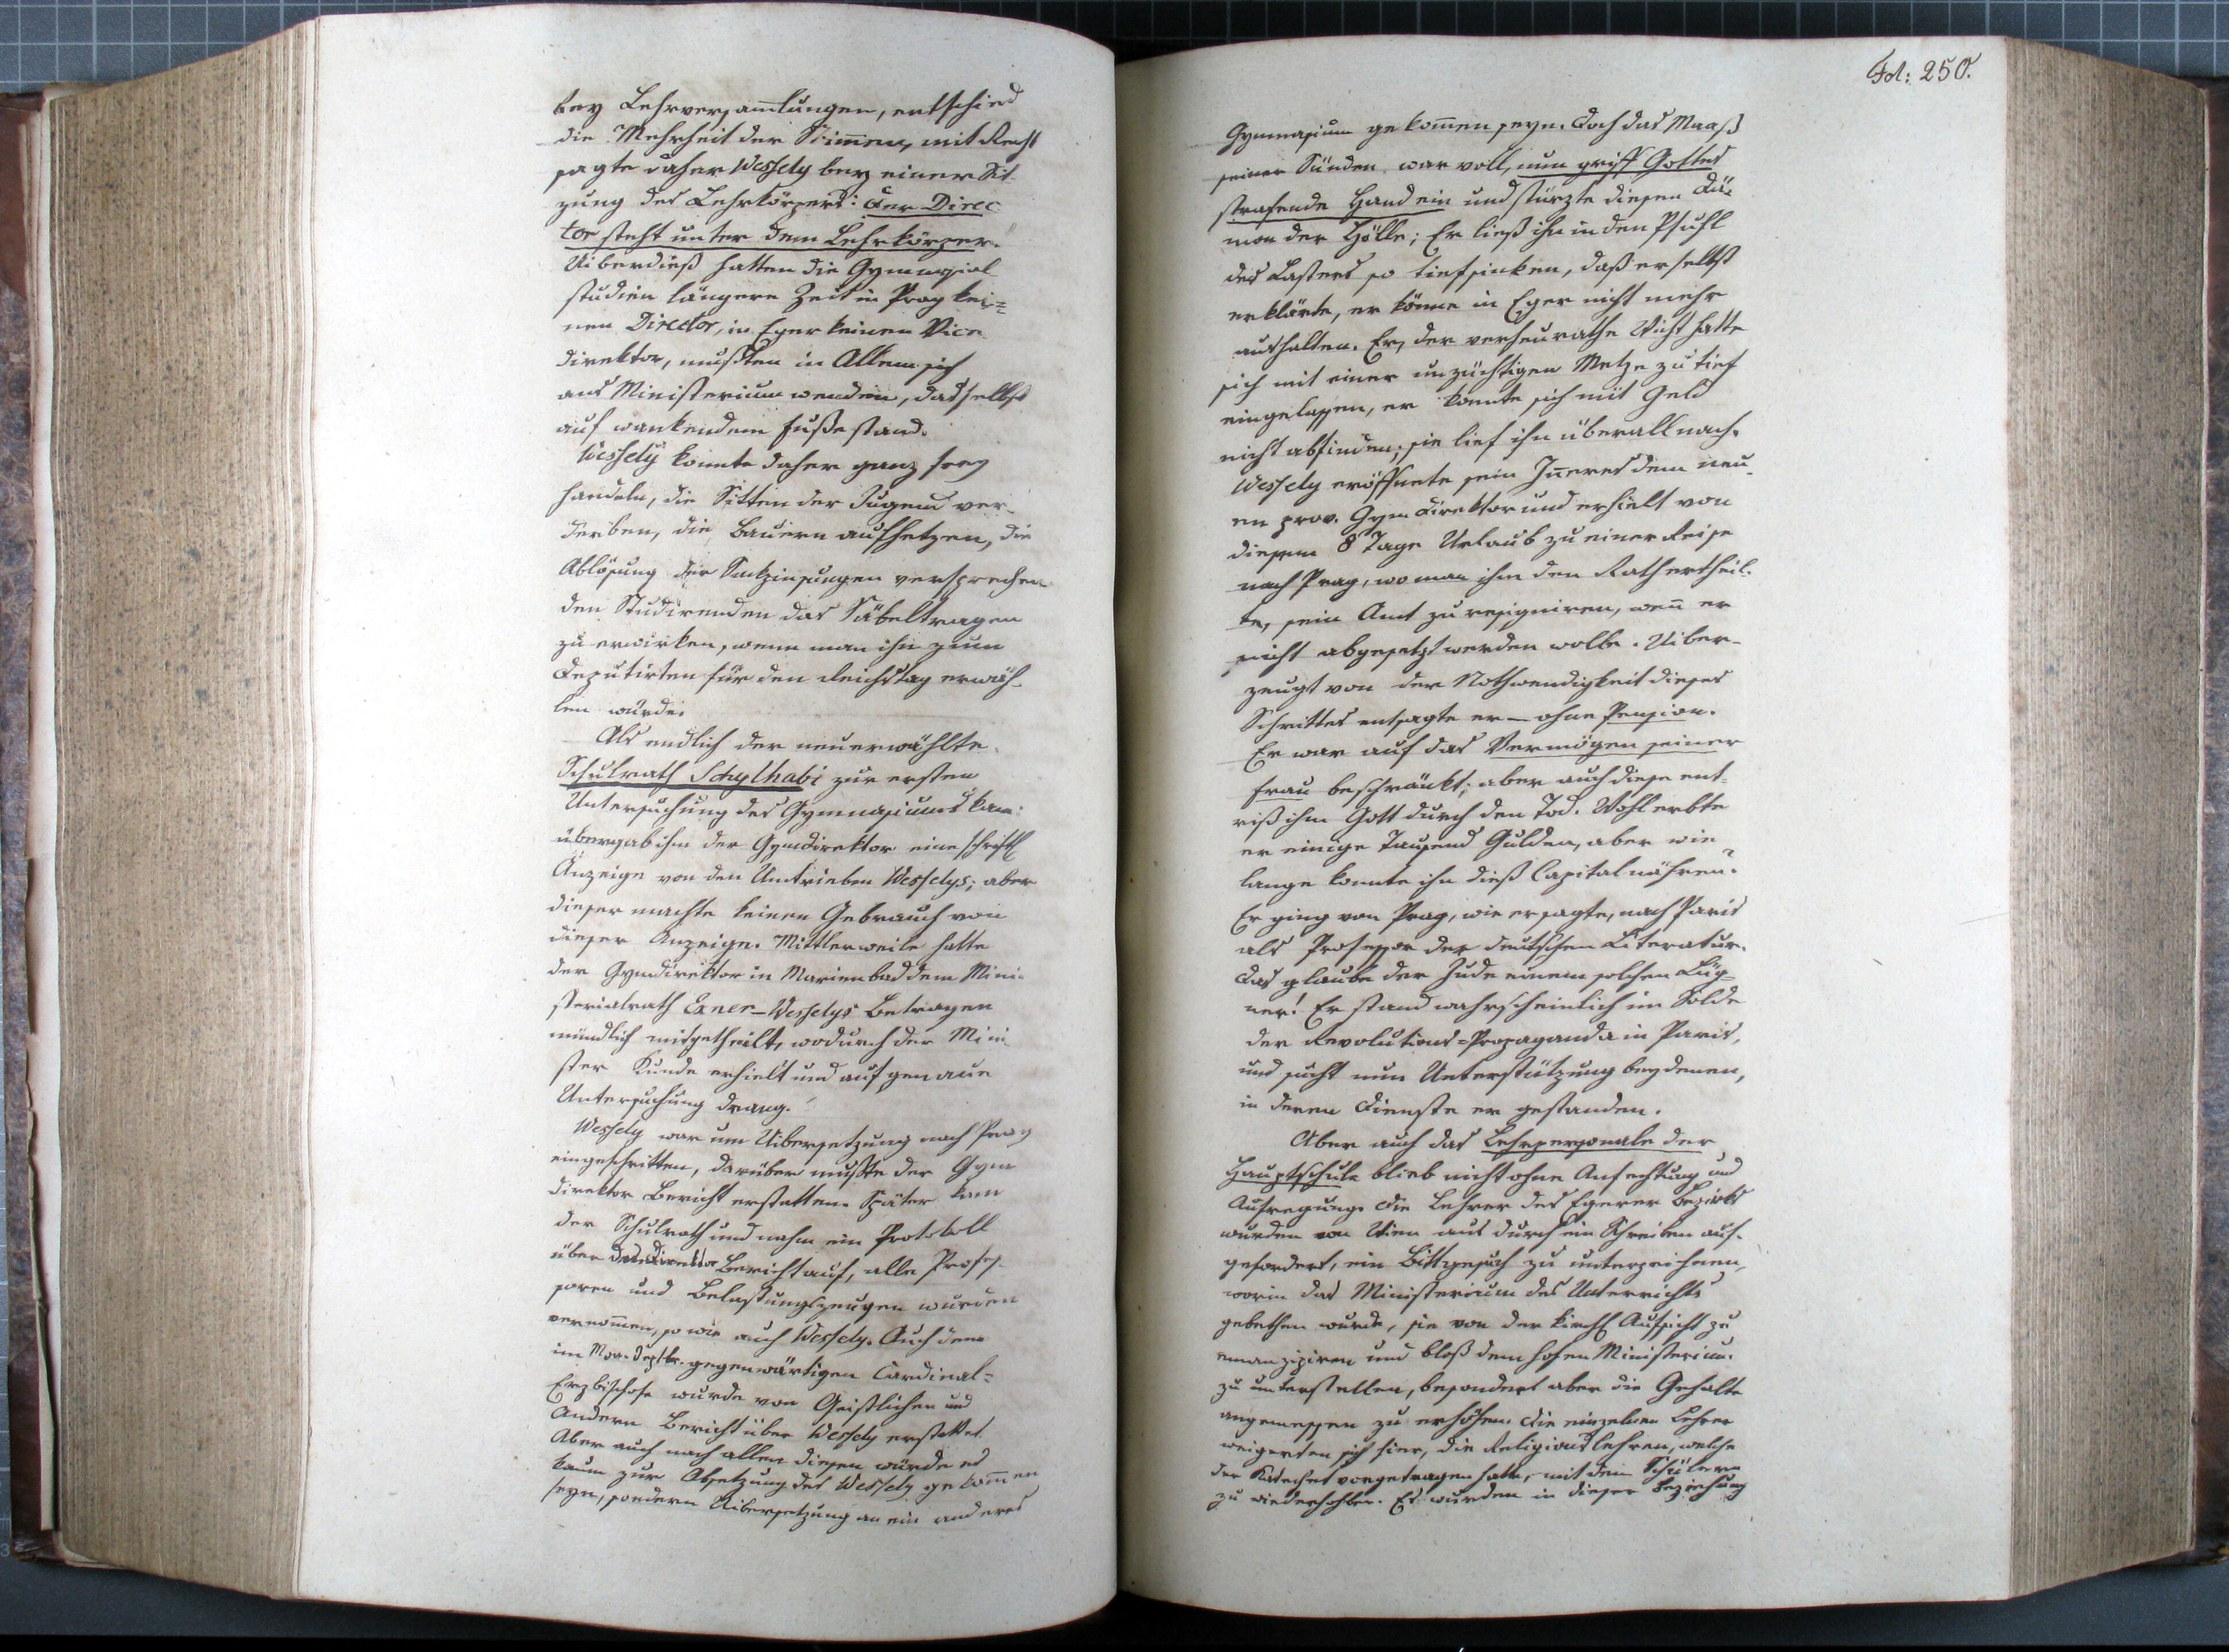 bey Lehrversam̅lungen, entschied
die Mehrheit der Stim̅en, mit Recht
sagte daher Wessely bey einer Sit-
zung des Lehrkörpers: Der Direc
tor steht unter dem Lehrkörper."
Uiberdieß hatten die Gymnasial
studien längere Zeit in Prag kei=
nen Director, in Eger keinen Vice
direktor, mußten in Allem sich
ans Ministerium wenden, das selbst
auf wankendem Fuße stand.
Wessely konnte daher ganz frey
handeln, die Sitten der Jugend ver-
derben, die Bauern aufhetzen, die
Ablösung der versprechen
den Studirenden das Säbeltragen
zu erwirken, wenn man ihn zum
Deputirten für den Reichstag erwäh-
len würde.
Als endlich der neuerwählte
Schulrath Schylhabi zur ersten
Untersuchung des Gymnasiums kam:
übergab ihm der Gymdirektor eine schriftl
Anzeige von den Umtrieben Wesselys; aber
dieser machte keinen Gebrauch von
dieser Anzeige. Mittlerweile hatte
der Gymdirektor in Marienbad dem Mini-
sterialrath Exner - Wesselys Betragen
mündlich mitgetheilt, wodurch der Mini
ster Kunde erhielt und auf genaue
Untersuchung drang.
Wessely war um Uibersetzung nach Prag
eingeschritten, darüber mußte der Gym
direktor Bericht erstatten. Später kam
der Schulrath und nahm ein Protokoll
über des Direktor Bericht auf, alle Profes-
soren und Belastungszeugen wurden
vernom̅en, so wie auch Wessely. Auch dem
im Mon. Septbr. gegenwärtigen Cardinal=
Erzbischofe wurde von Geistlichen und
Andern Bericht über Wessely erstattet.
Aber auch nach allen diesen würde es
kaum zur Absetzung des Wessely gekom̅en
seyn, sondern Uibersetzung an ein anderes
Fol: 250.
Gymnasium gekom̅en seyn. Doch das Maaß
seiner Sünden war voll, nun griff Gottes
strafende Hand ein und stürzte diesen Dä-
mon der Hölle; Er ließ ihn in den Pfuhl
des Lasters so tief sinken, daß er selbst
erklärte, er könne in Eger nicht mehr
aushalten. Er, der verheurathe Wicht hatte
sich mit einer unzüchtigen Metze zu tief
eingelassen, er konnte sich mit Geld
nicht abfinden; sie lief ihn überall nach.
Wessely eröffnete sein In̅eres dem neu-
en prov. Gym Direktor und erhielt von
diesem 8 Tage Urlaub zu einer Reise
nach Prag, wo man ihm den Rath ertheil-
te, sein Amt zu resigniren, wen̅ er
nicht abgesetzt werden wolle. Uiber-
zeugt von der Nothwendigkeit dieses
Schrittes entsagte er - ohne Pension.
Er war auf das Vermögen seiner
Frau beschränkt; aber auch diese ent-
riß ihm Gott durch den Tod. Wohl erbte
er einige Tausend Gulden, aber wie
lange konnte ihn dieß Capital nähren?
Er ging von Prag, wie er sagte, nach Paris
als Professor der deutschen Literatur.
Das glaube der Jude einem solchen Lüg-
ner! Er stand wahrscheinlich im Solde
der Revolutions=Propaganda in Paris,
und sucht nun Unterstützung bey denen,
in deren Dienste er gestanden.
Aber auch das Lehrpersonale der
Hauptschule blieb nicht ohne Anfechtung und
Aufregung. Die Lehrer des Egerer Bezirks
wurden von Wien aus durch ein Schreiben auf-
gefordert, ein Bittgesuch zu unterzeichnen,
worin das Ministerium des Unterrichts
gebethen wurde, sie von der kirchl Aufsicht zu
emanzipiren und bloß dem hohen Ministerium
zu unterstellen, besonders aber die Gehalte
angemessen zu erhöhen. Die einzelnen Lehrer
weigerten sich hier, die Religionslehren, welche
der Katechet vorgetragen hatte, mit den Schülern
zu wiederhohlen. Es wurden in dieser Beziehung